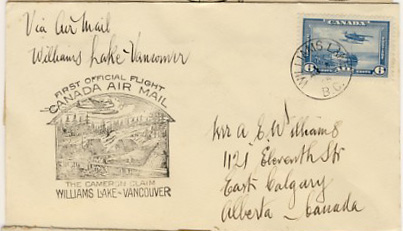 Via Air Mail
Williams Lake - Vancouver
CANADA
6 6
WILLIAMS LA
B.C.
FIRST OFFICIAL FLIGHT
CANADA AIR MAIL
THE CAMERON CLAIM
WILLIAMS LAKE - VANCOUVER
Mr A. E. Williams
1121 Eleventh St
East Calgary
Alberta - Canada